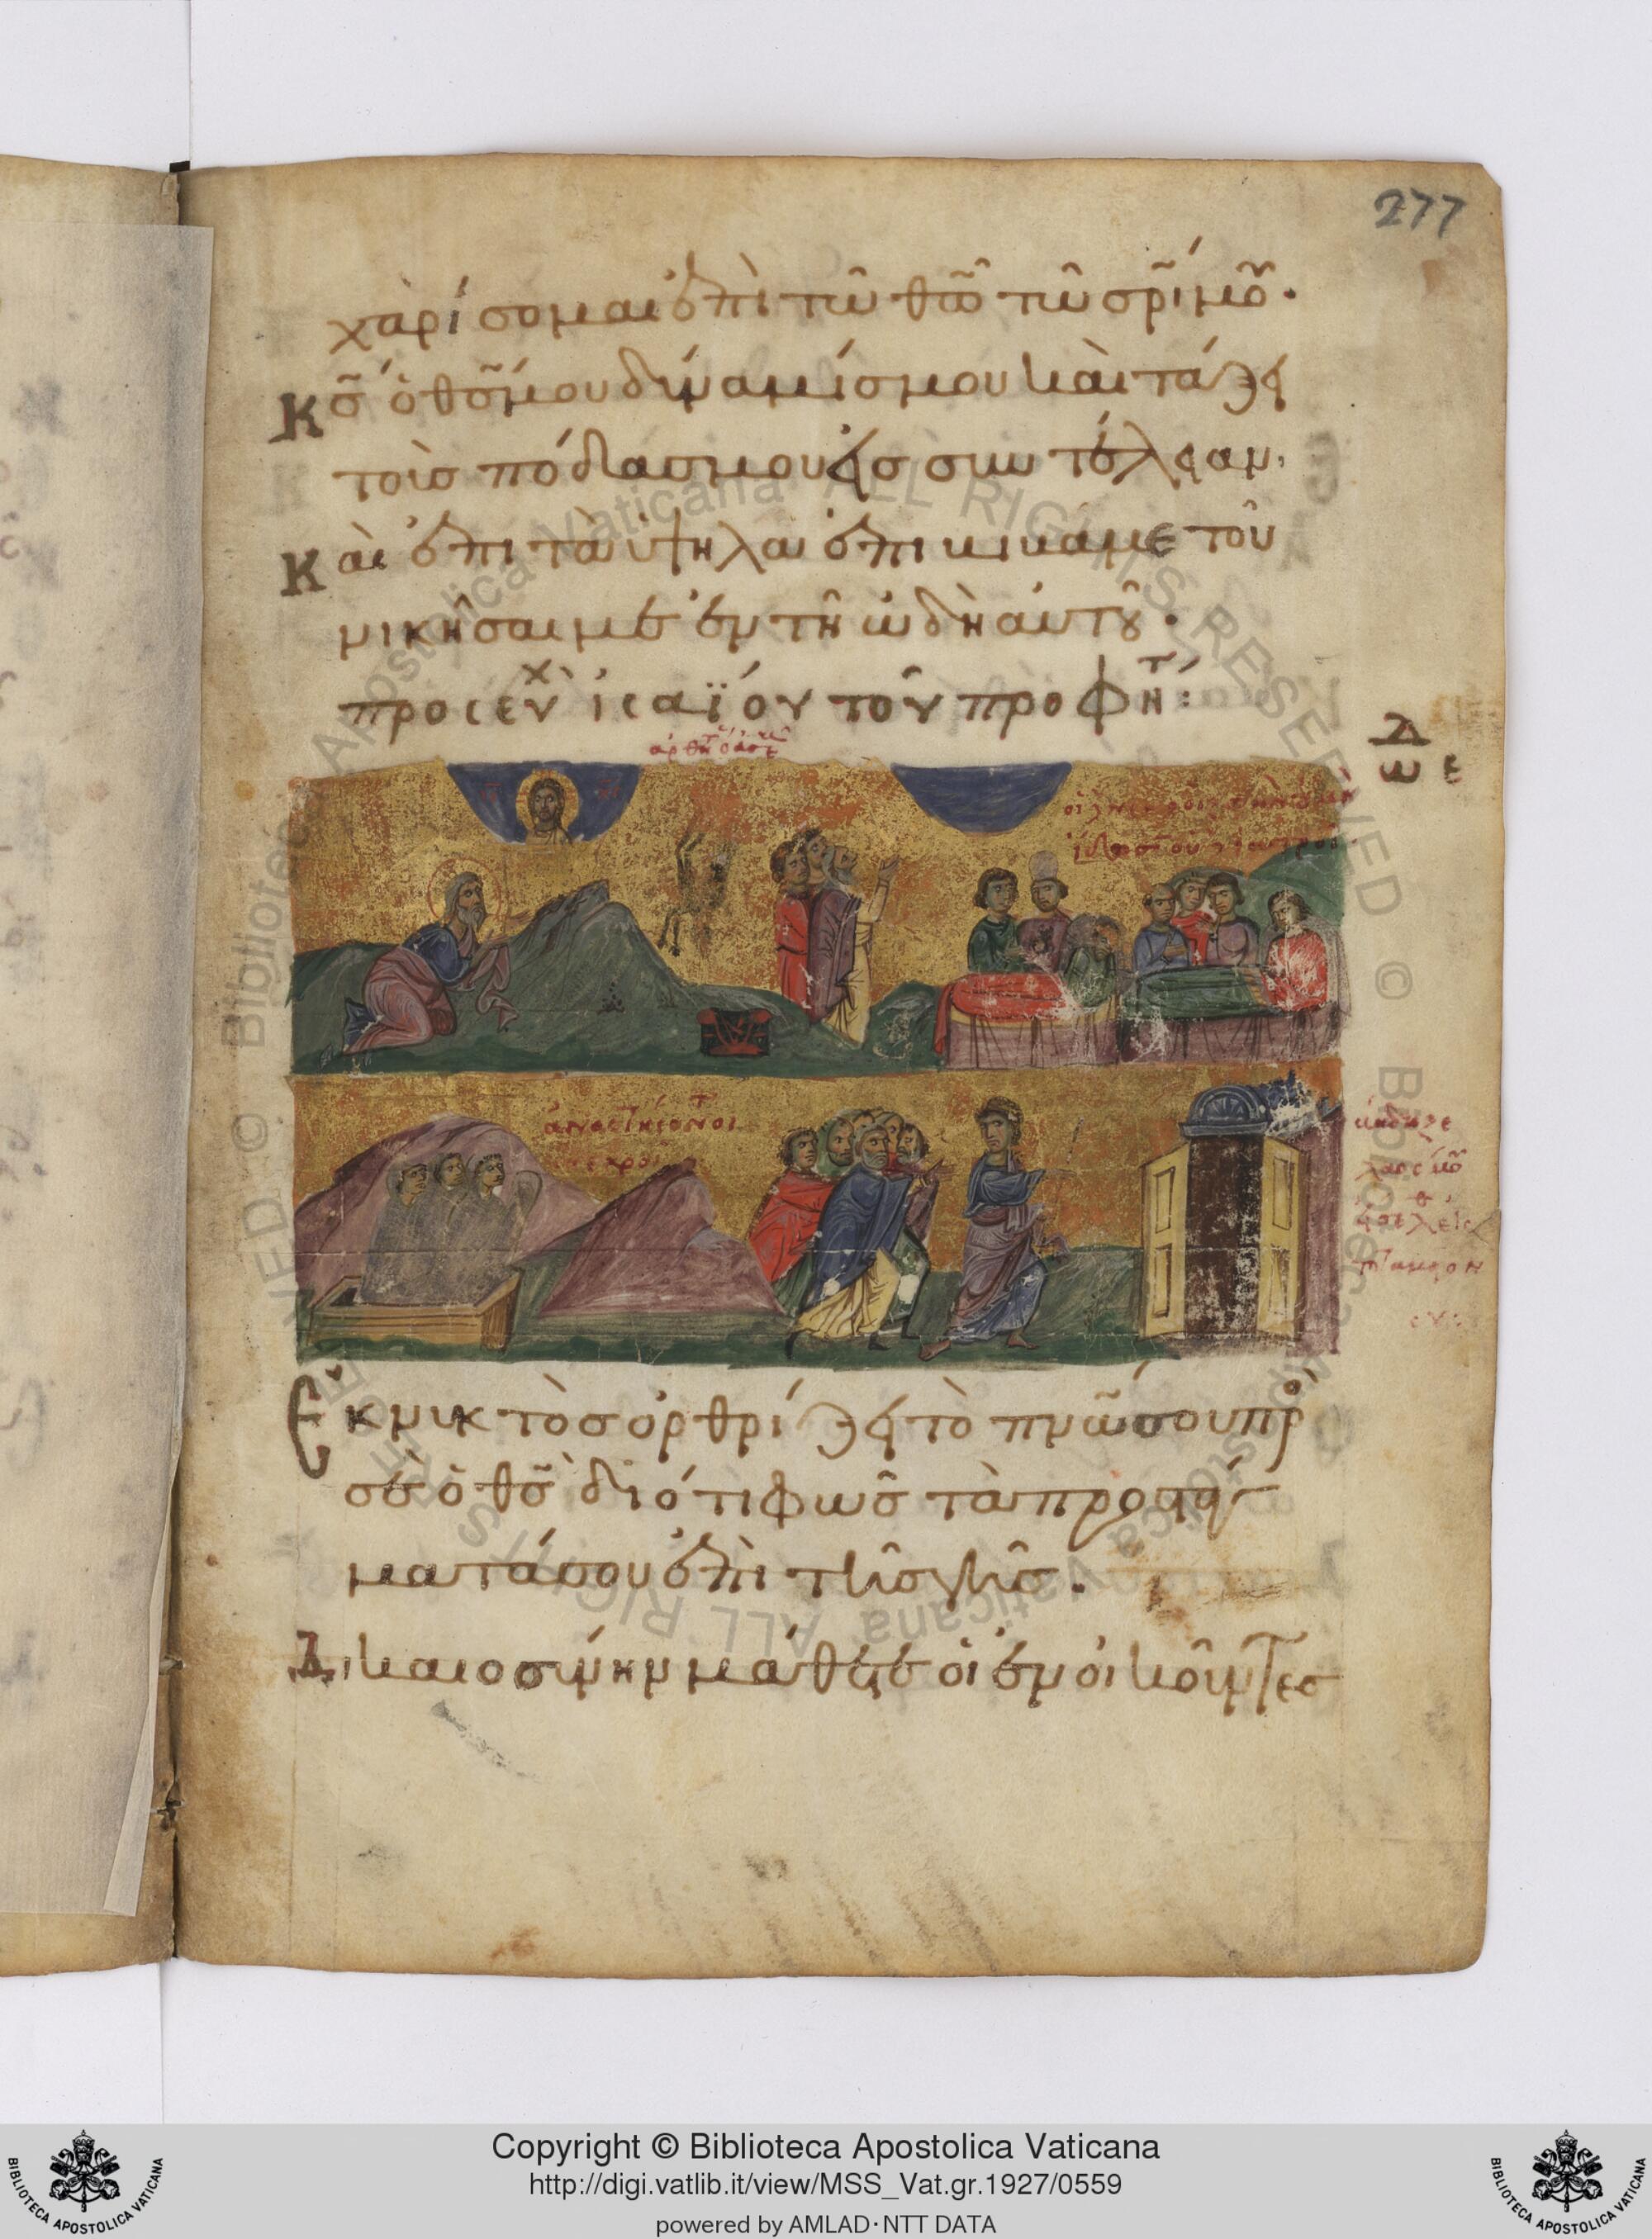 277
χαρίσομαι ἐπὶ τῶ θῶ τῶ σρί μου.
κς ὁ θς μου δύναμίς μου καὶ τάξει
τοὺς πόδας μου εἰς συντέλειαν,
Καὶ ἐπὶ τὰ ὑψηλὰ ἐπιβιβᾶ με τοῦ
νικῆσαί με ἐν τῆ ὠδῆ αὐτοῦ.
προσευχ ἰσαΐου τοῦ προφητ:
ω ε
ἀναστήσοντ οἱ
νεκροί
Ἐκ νυκτὸς ὀρθρίζει τὸ πνα μου πρὸ
σὲ ὁ θς διότι φῶς τὰ προστάγ
ματά σου ἐπὶ τῆς γῆς.
Δικαιοσύνην μάθετε οἱ ἐνοικοῦντες
Copyright © Biblioteca Apostolica Vaticana
http://digi.vatlib.it/view/MSS_Vat.gr.1927/0559
powered by AMLAD·NTT DATA
BIBLIOTECA APOSTOLICA VATICANA
BIBLIOTECA APOSTOLICA VATICANA